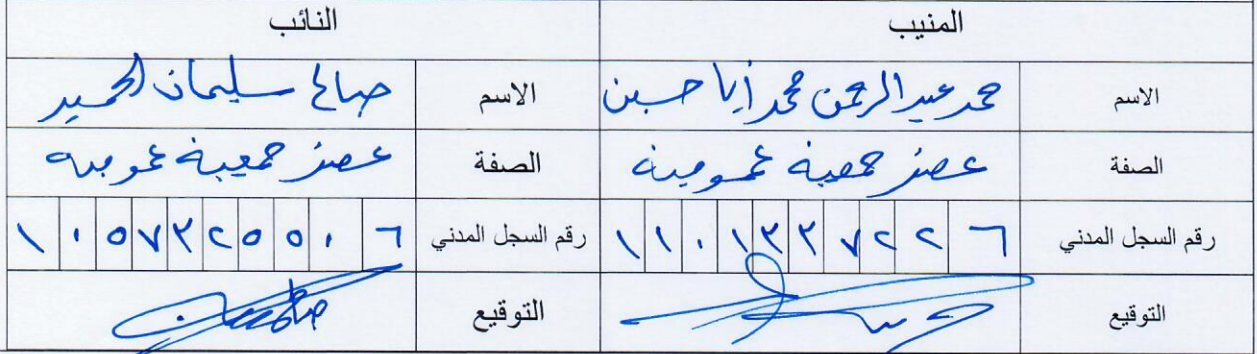 المنيب النائب
الاسم محمد عبدالرحمن محمد أبا حسين الاسم صالح سليمان الحميد
الصفة عضو جمعية عمومية الصفة عضو جمعية عمومية
رقم السجل المدني ١١٠١٣٣٧٢٢٦ رقم السجل المدني ١٠٥٧٣٢٥٥٠٦
التوقيع التوقيع